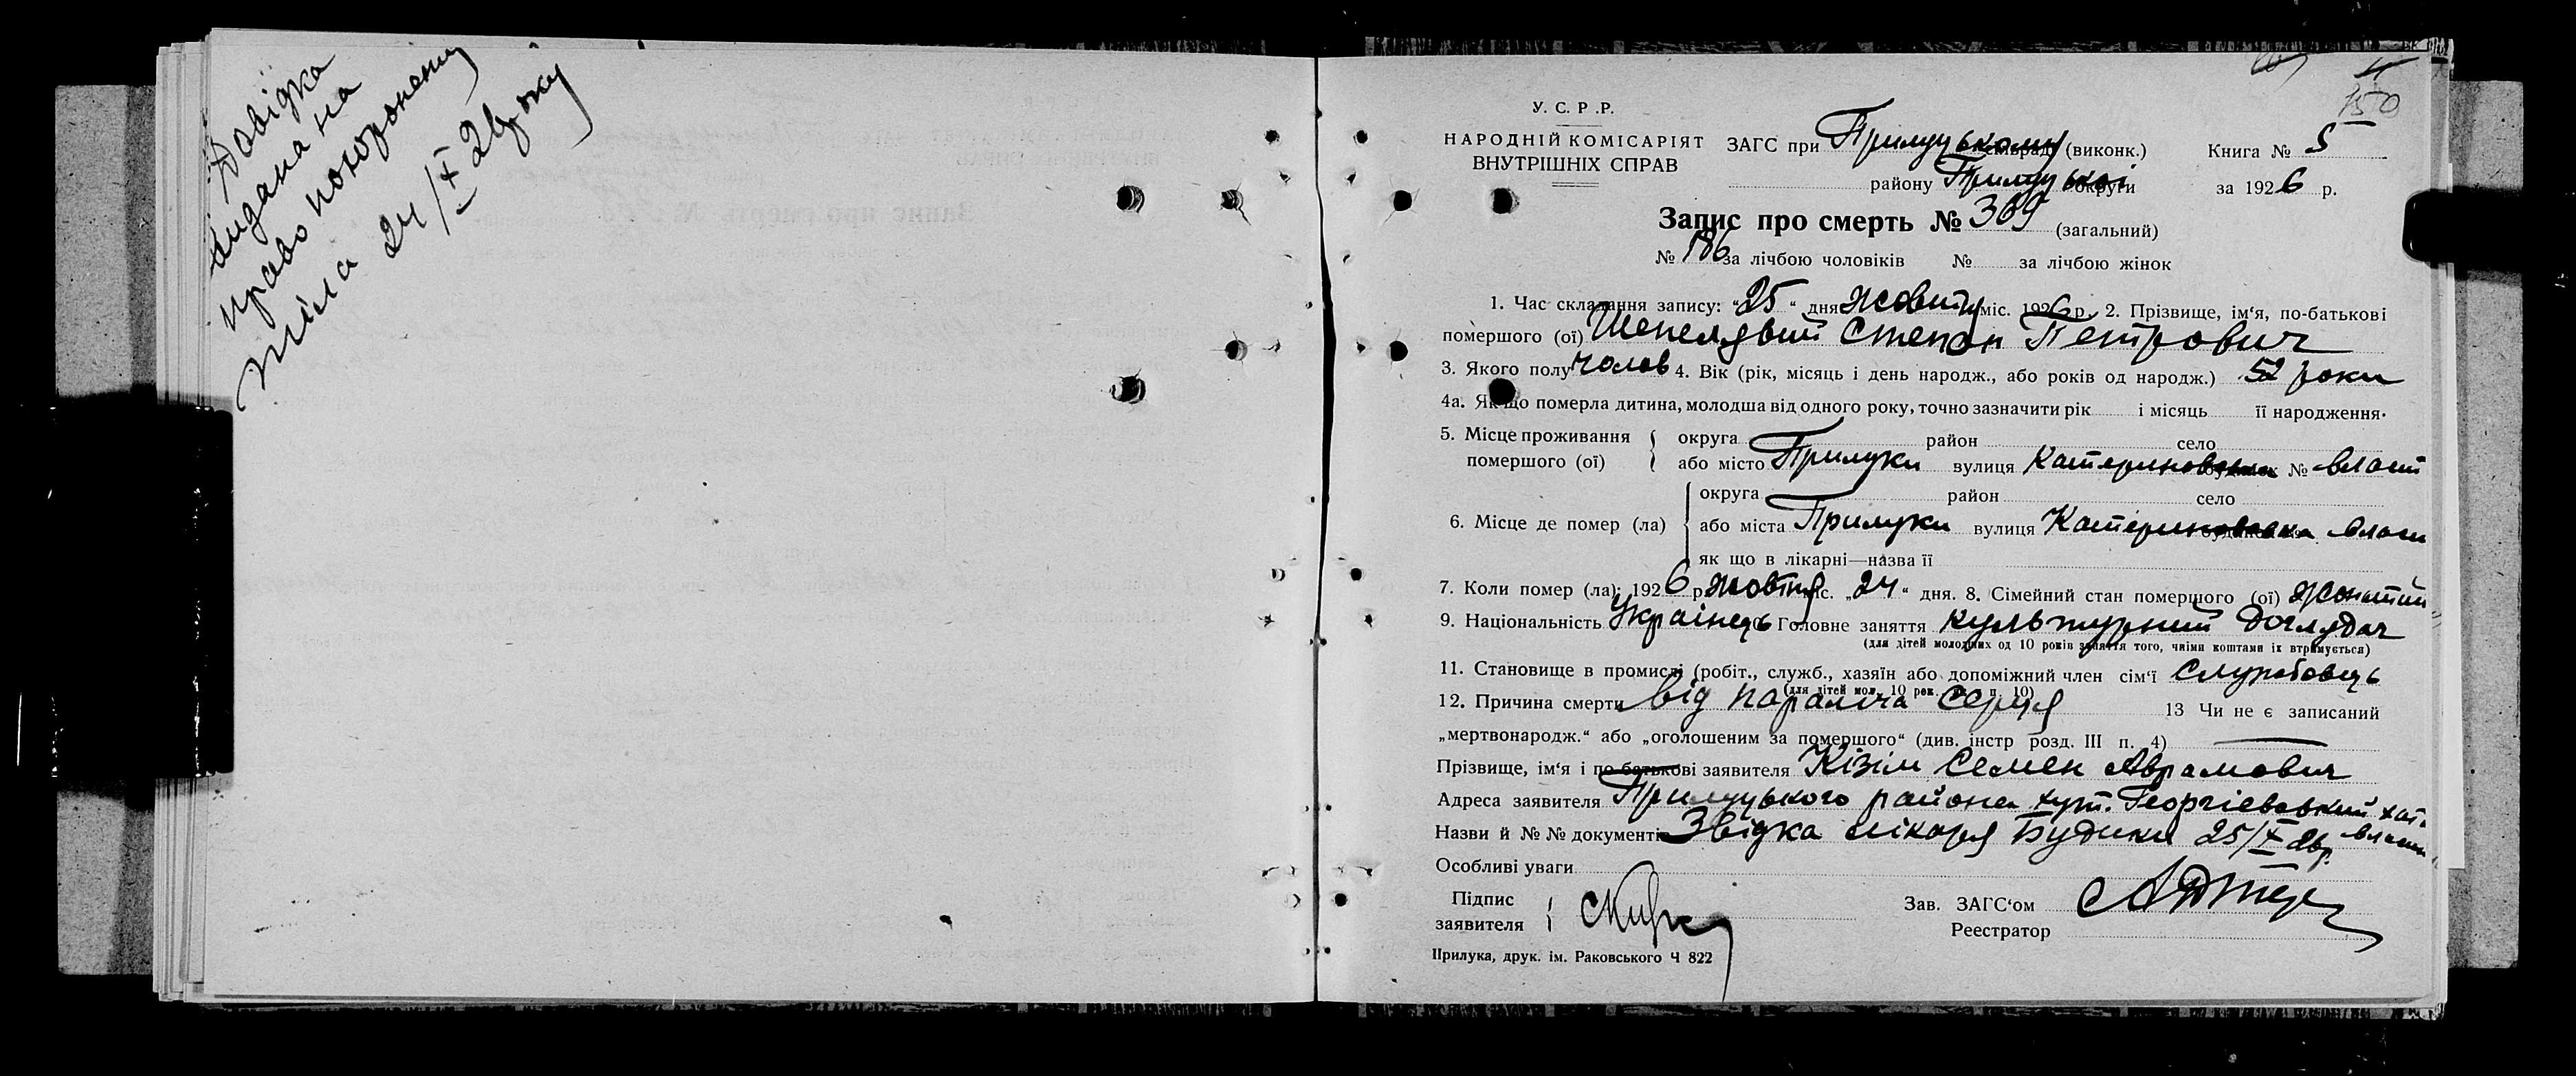 Довідка
видана на
право похоронення
тіла 24/X 26 року
150
У. С. Р. Р.
НАРОДНІЙ КОМІСАРІЯТ
ВНУТРІШНІХ СПРАВ
ЗАГС при Прилуцькому (виконк.) Книга № 5
району Прилуцької округи за 1926 р.
Запис про смерть № 369 (загальний)
№ 186 за лічбою чоловіків № за лічбою жінок
1. Час складання запису: „25" дня жовтня міс. 1926 р. 2. Прізвище, ім'я, по-батькові
помершого (ої) Шепелявий Степан Петрович
3. Якого полу чолов 4. Вік (рік, місяць і день народж., або років од народж.) 52 роки
4а. Якщо померла дитина, молодша від одного року, точно зазначити рік і місяць її народження.
5. Місце проживання помершого (ої) округа район село
або місто Прилуки вулиця Катериновська № власн
6. Місце де помер (ла) округа район село
або міста Прилуки вулиця Катериновська власн
як що в лікарні—назва її
7. Коли помер (ла): 1926 р. жовтня міс. „24" дня. 8. Сімейний стан помершого (ої) жонатий
9. Національність Украінець Головне заняття культурний доглядач
(для дітей молодших од 10 років заняття того, чиїми коштами їх втримується)
11. Становище в промислі (робіт., служб., хазяїн або допоміжний член сім'ї службовець
(для дітей мол. 10 рок. п. 10)
12. Причина смерти від параліча серця 13 Чи не є записаний
„мертвонародж." або „оголошеним за помершого" (див. інстр розд. III п. 4)
Прізвище, ім'я і по-батькові заявителя Кізім Семен Аврамович
Адреса заявителя Прилуцького района хут. Георгіевський хата
власна
Назви й №№ документів Звідка лікаря Будики 25/X 26р.
Особливі уваги
Підпис
заявителя
Зав. ЗАГС'ом
Реестратор
Прилука, друк. ім. Раковського Ч 822